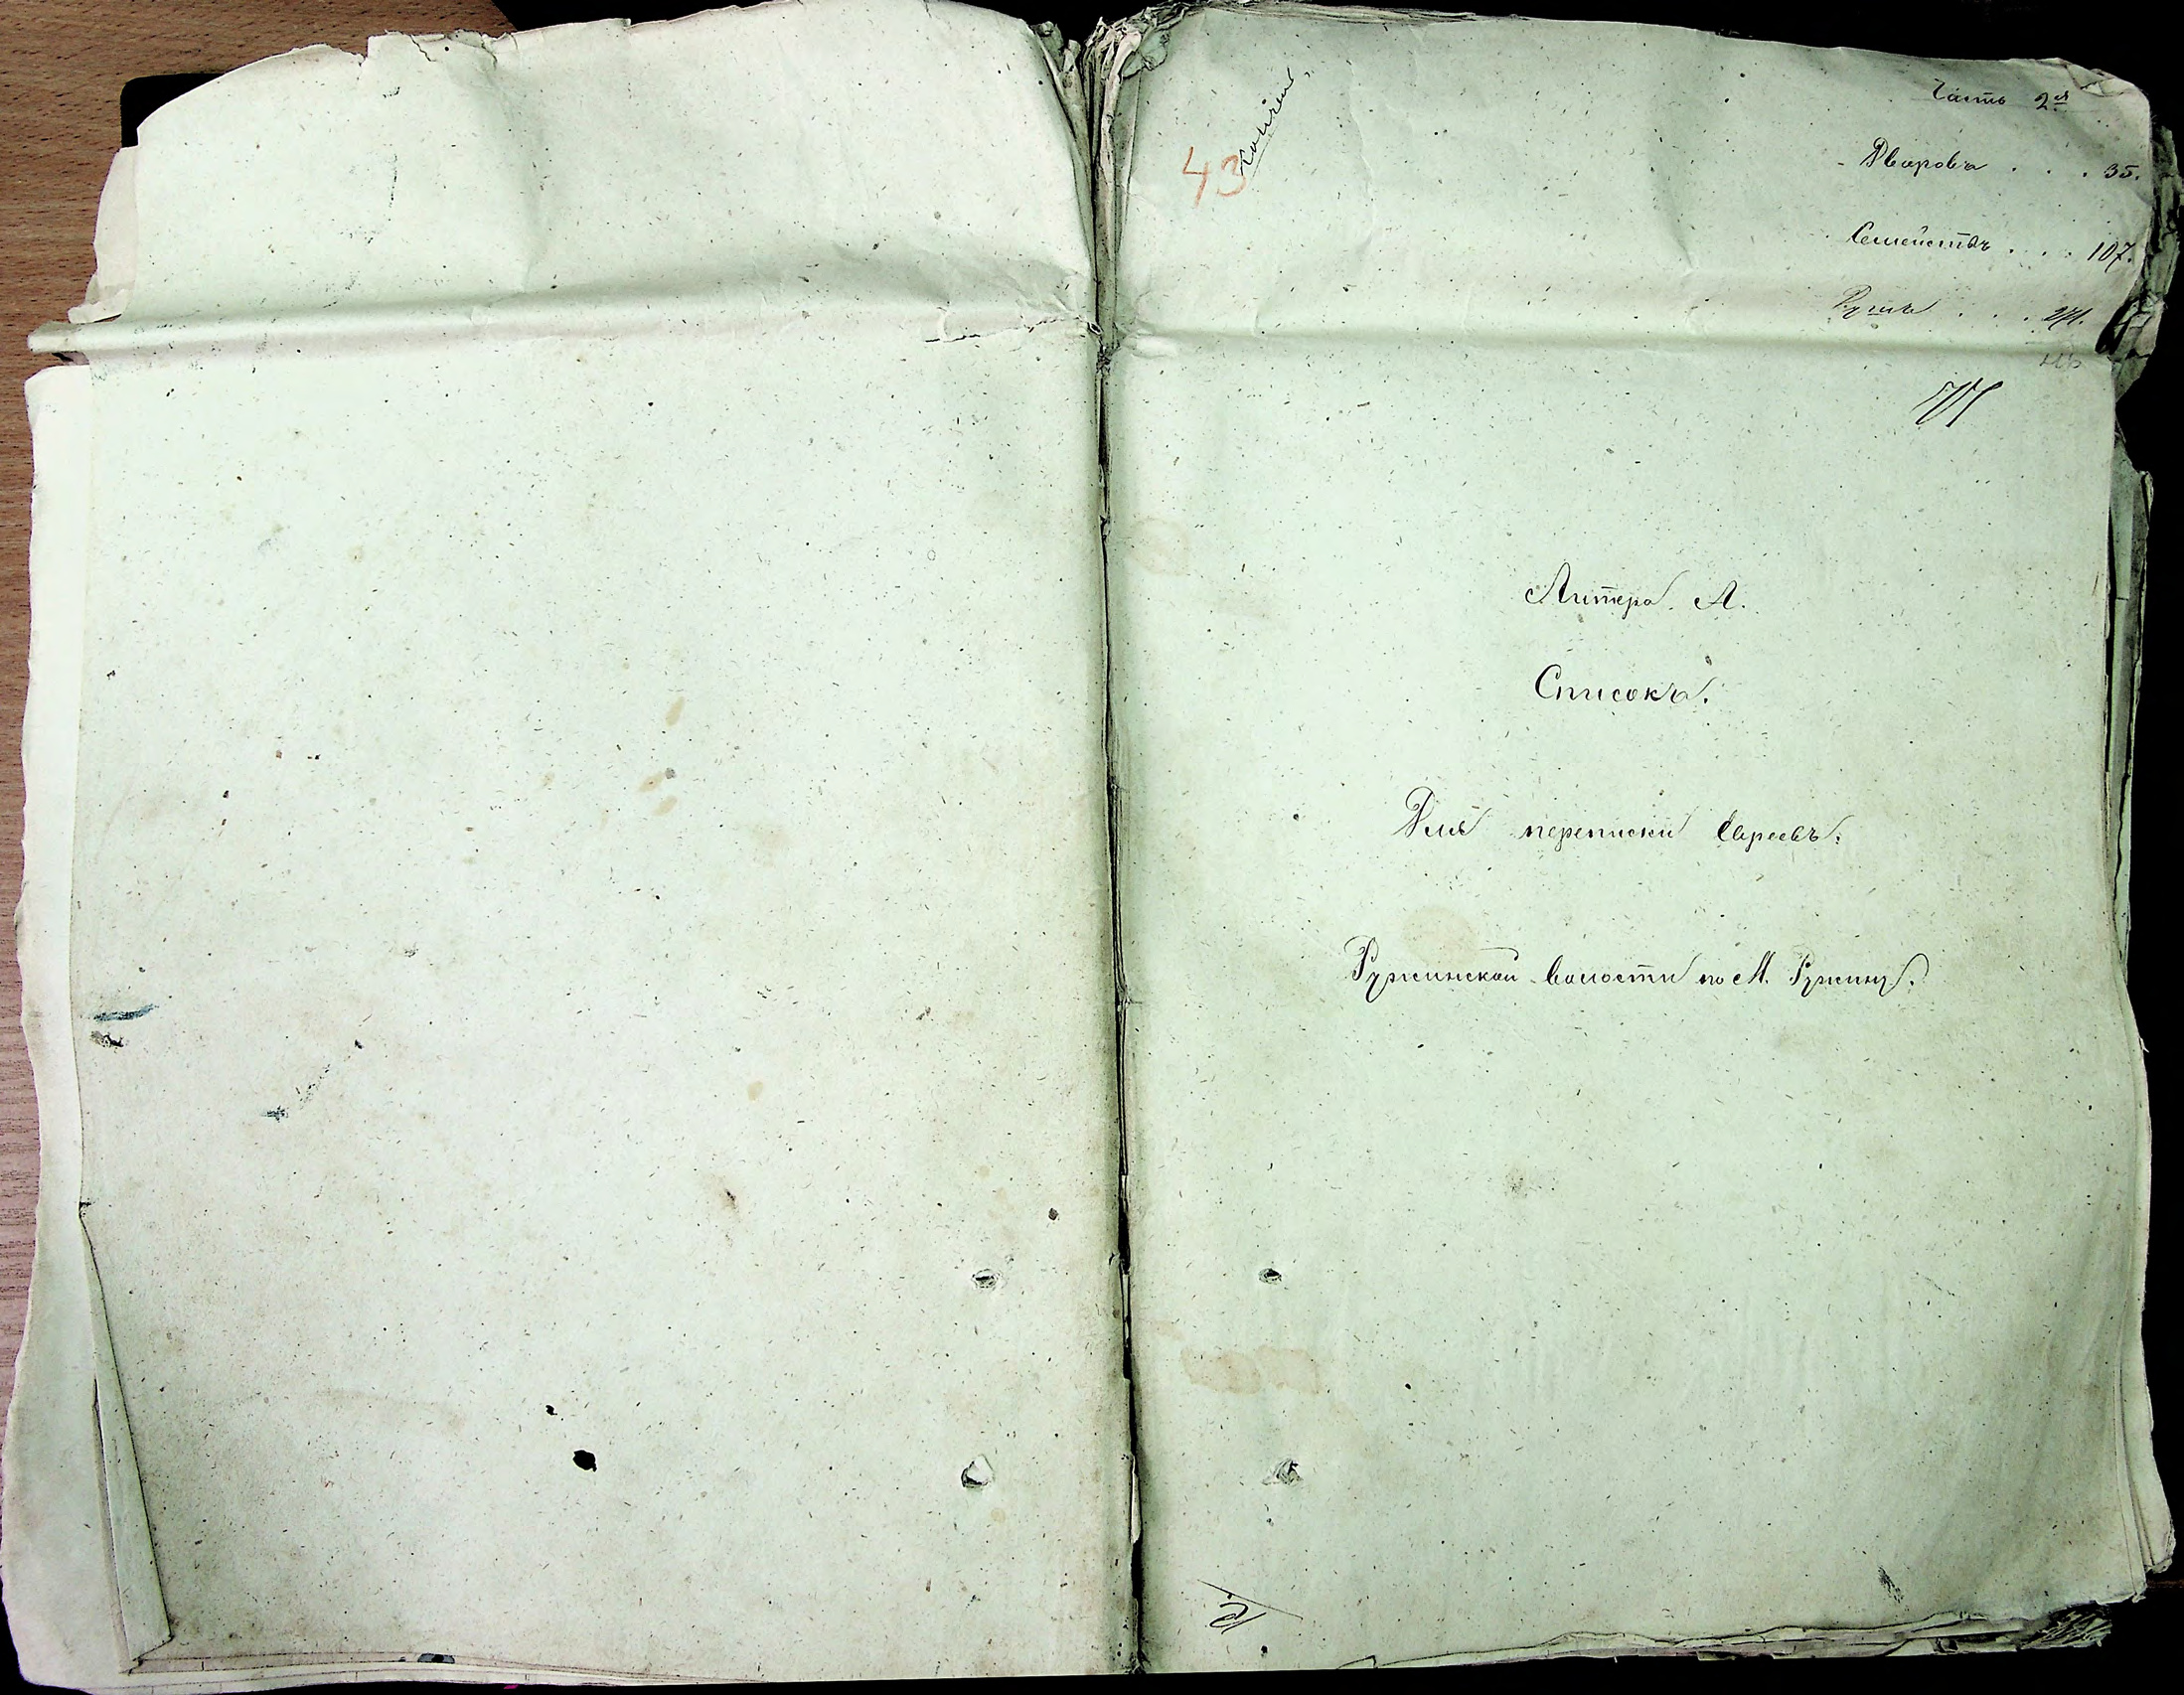 Часть 2я
43
Дворовъ . . . 35.
Семействъ . . . 107.
Душъ . . . 271.
Литера. А.
Списокъ.
Для переписки Евреевъ.
Ружинской волости по М. Ружину.